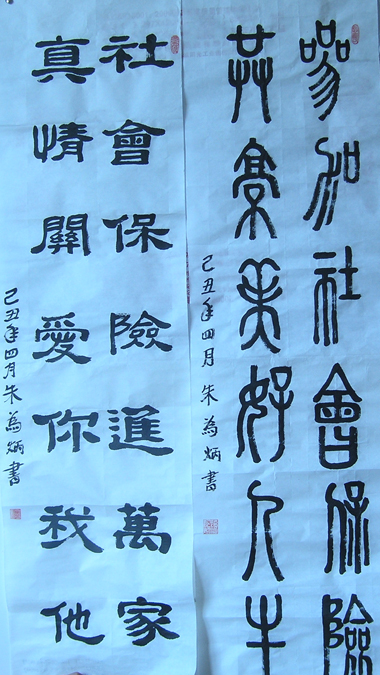 參加社會保險
共享美好人生
己丑年四月朱為炳書
社會保險進萬家
真情關愛你我他
己丑年四月朱為炳書